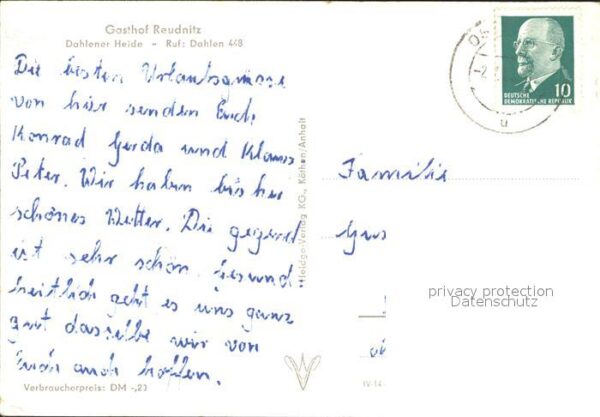 Gasthof Reudnitz
Dahlener Heide – Ruf: Dahlen 448
Die besten Urlaubsgrüsse
von hier senden Euch
Konrad Gerda und Klaus
Peter. Wir haben bis her
schönes Wetter. Die gegend
ist sehr schön. Gesund-
heitlich geht es uns ganz
gut dasselbe wir von
Euch auch hoffen.
Verbraucherpreis: DM -,23
Heldge-Verlag KG., Köthen/Anhalt
10
DEUTSCHE
DEMOKRATISCHE REPUBLIK
Familie
privacy protection
Datenschutz
IV-14-